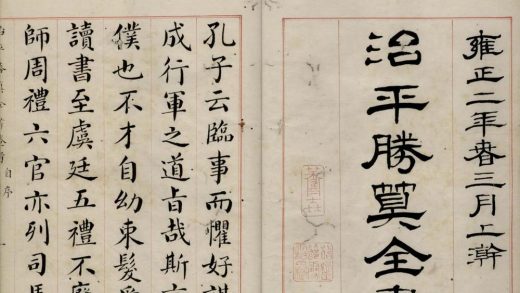 雍正二年春三月上澣
治平勝算全書
孔子云臨事而懼好謀
成行軍之道旨哉斯
僕也不才自幼束髮受
讀書至虞廷五禮不廢
師周禮六官亦列司馬
自序